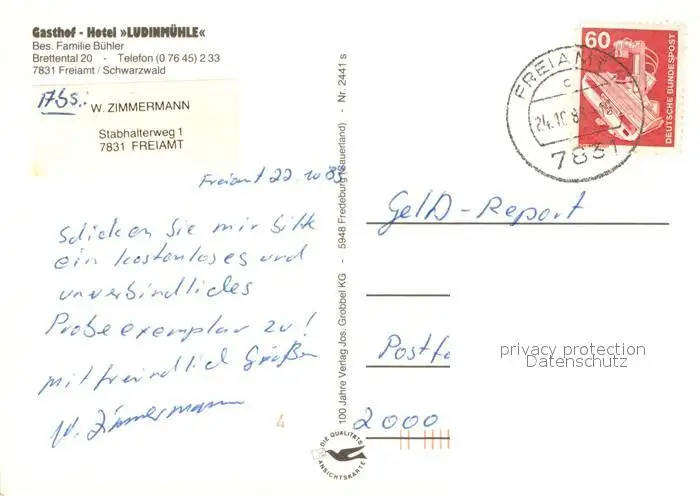 Gasthof - Hotel »LUDINMÜHLE«
Bes. Familie Bühler
Brettental 20 - Telefon (0 76 45) 2 33
7831 Freiamt / Schwarzwald
Abs.:
W. ZIMMERMANN
Stabhalterweg 1
7831 FREIAMT
Freiamt 22.10 85
Schicken Sie mir bitte
ein kostenloses und
unverbindliches
Probeexemplar zu!
mit freundlich Grüßen
W. Zimmermann
4
100 Jahre Verlag Jos. Grobbel KG - 5948 Fredeburg (Sauerland) - Nr. 2441 s
DIE QUALITÄTS
ANSICHTSKARTE
60
DEUTSCHE BUNDESPOST
FREIAMT
c
24.10.8
7831
GelD-Report
Postfa
2000
privacy protection
Datenschutz